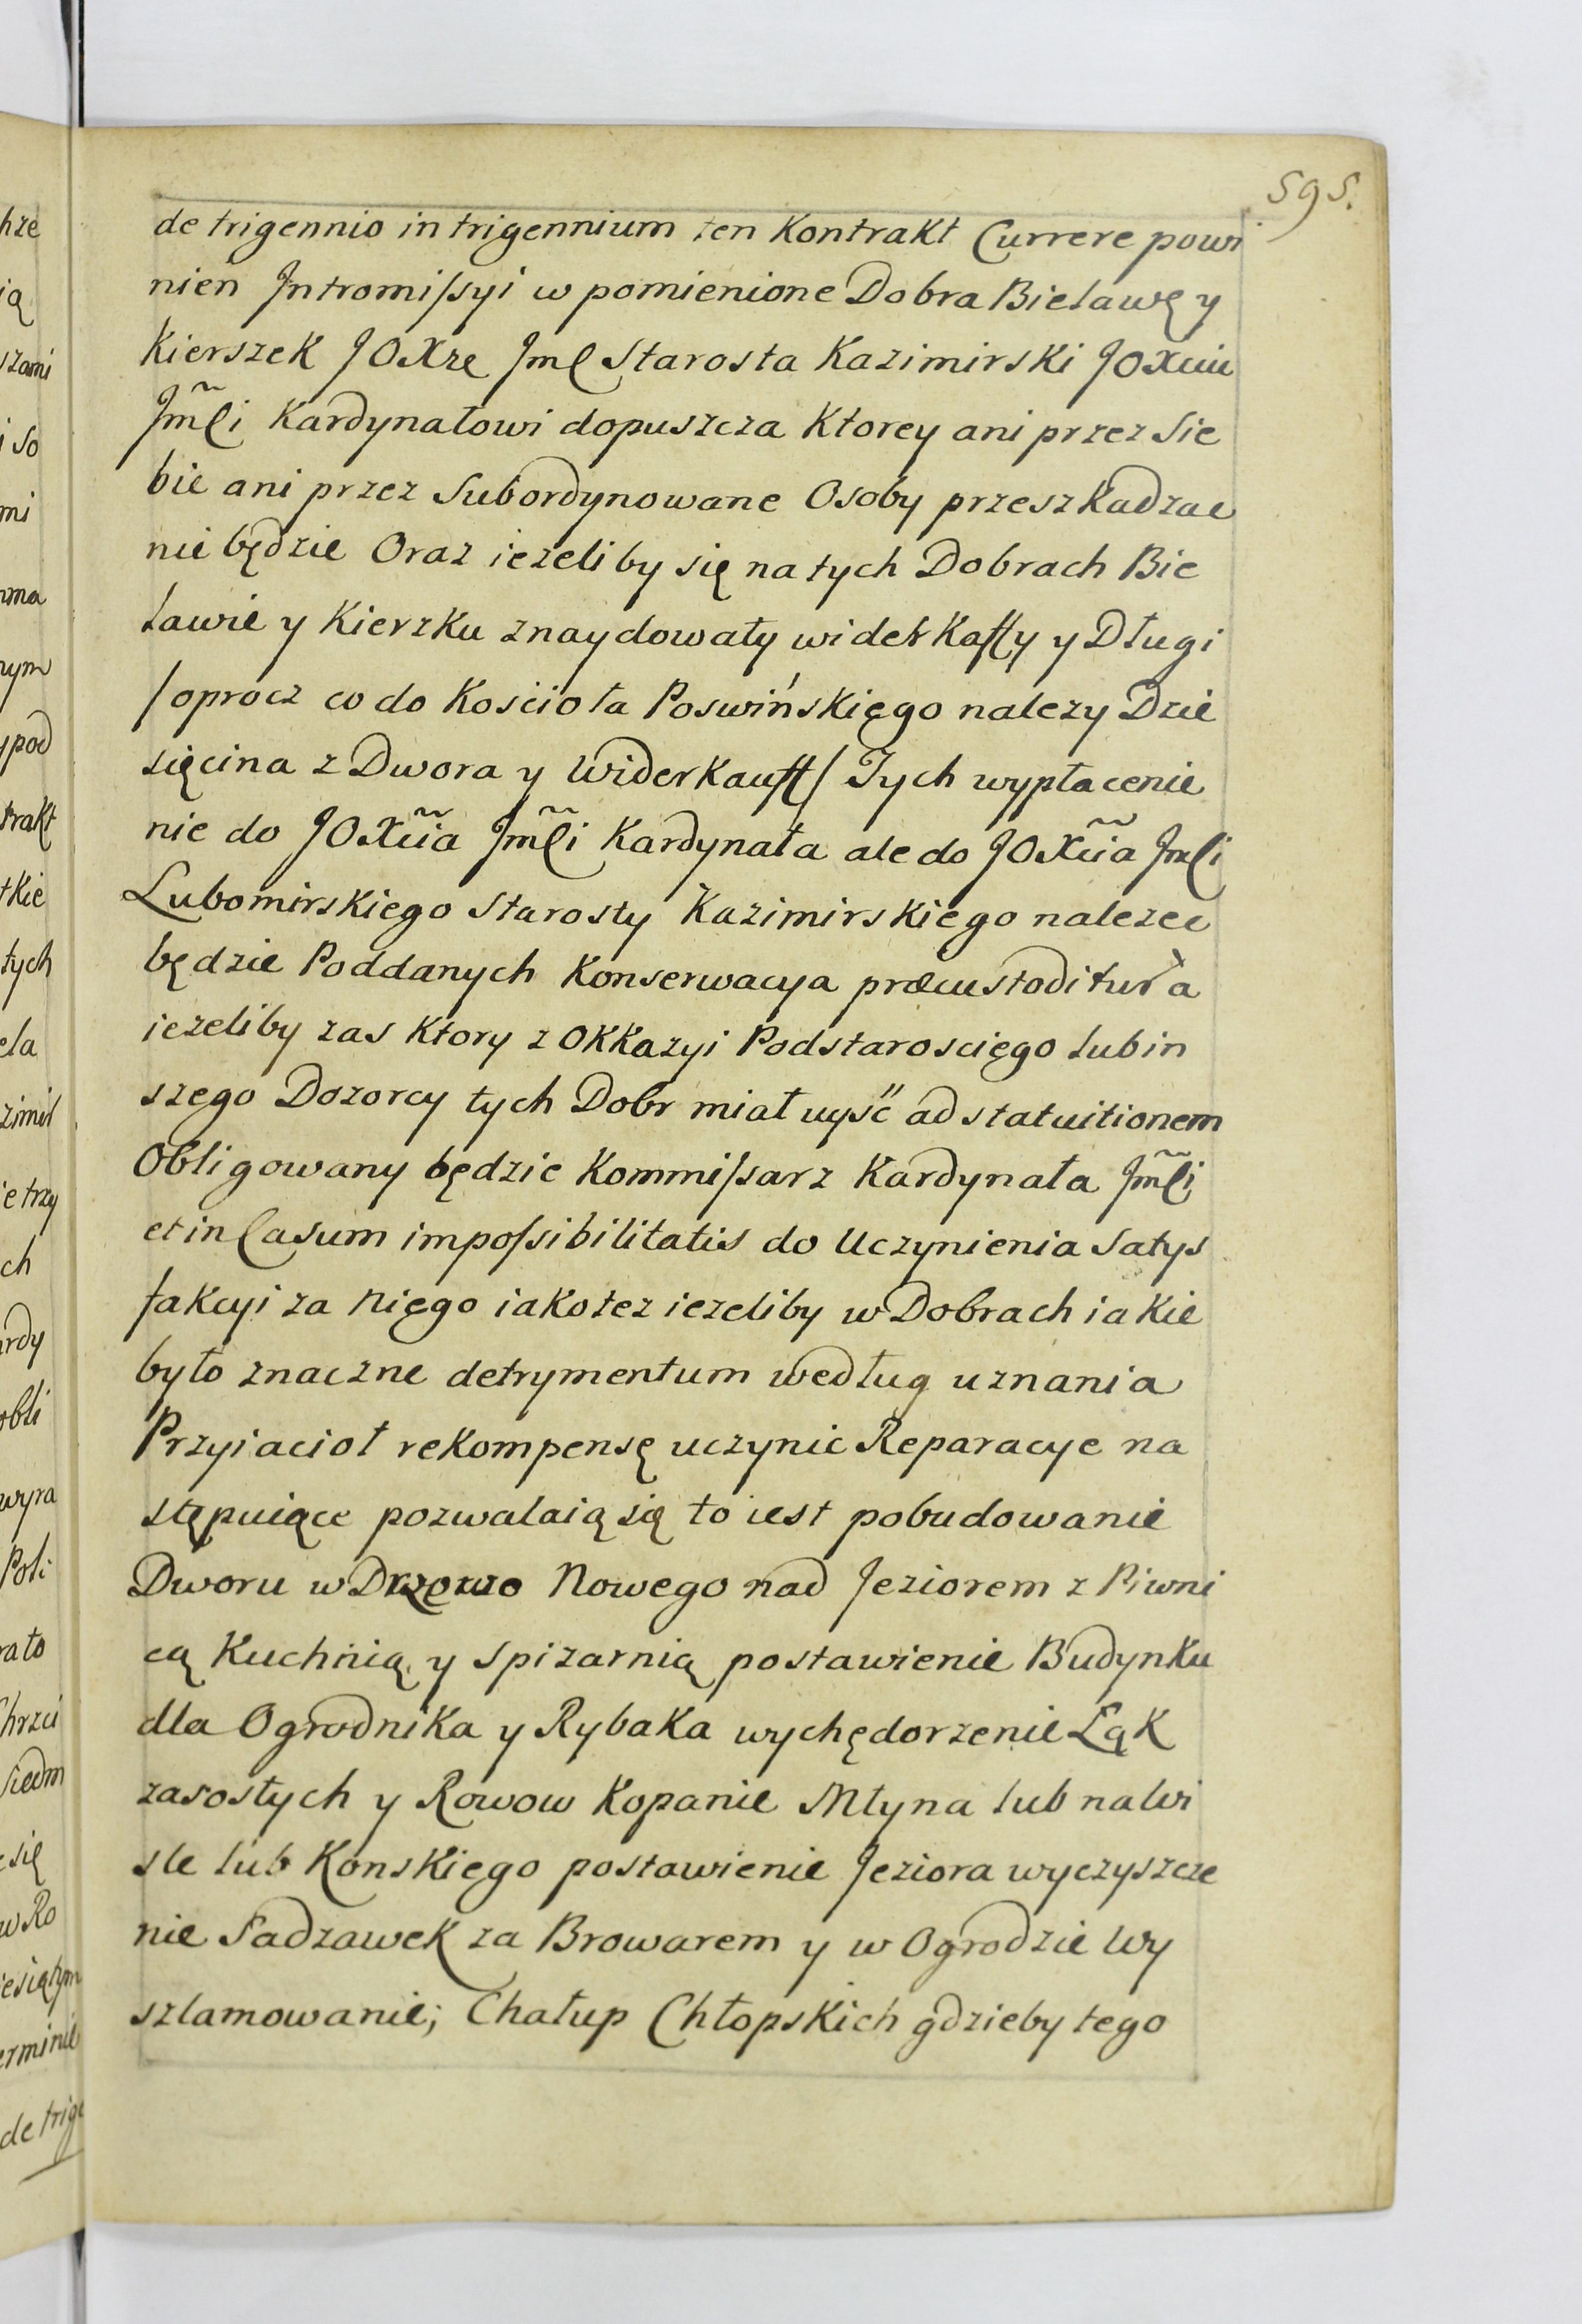 595.
de trigennio in trigennium ten Kontrakt Currere powi
nien Intromissyi w pomienione Dobra Bielawę y
Kierszek JOXże Jmć Starosta Kazimirski JOXciu
Jmći Kardynałowi dopuszcza Ktorey ani przez Sie
bie ani przez Subordynowane Osoby przeszkadzac
nie będzie Oraz iezeliby się na tych Dobrach Bie
lawie y Kierzku znaydowały widerkaffy y Długi
/oprocz co do Kościoła Poswińskięgo nalezy Dzie
sięcina z Dwora y Widerkauff/ Tych wypłacenie
nie do JOXcia Jmći Kardynała ale do JOXcia Jmći
Lubomirskiego Starosty Kazimirskiego nalezec
będzie Poddanych Konserwacya præcustoditur a
iezeliby zas Ktory z OKKazyi Podstarosciego lub in
szego Dozorcy tych Dobr miał uyść ad statuitionem
Obligowany będzie Kommissarz Kardynała Jmći
et in Casum impossibilitatis do Uczynienia Satys
fakcyi za Nięgo iako tez iezeliby w Dobrach iakie
było znaczne detrymentum według uznania
Przyiacioł rekompensę uczynic Reparacye na
stępuiące pozwalaią się to iest pobudowanie
Dworu w Drzewo Nowego nad Jeziorem z Piwni
cą Kuchnią y spizarnią postawienie Budynku
dla Ogrodnika y Rybaka wychędorzenie Łąk
zarosłych y Rowow Kopanie Młyna lub na Wi
sle lub Konskiego postawienie Jeziora wyczyszcze
nie Sadzawek za Browarem y w Ogrodzie Wy
szlamowanie; Chałup Chłopskich gdzieby tego